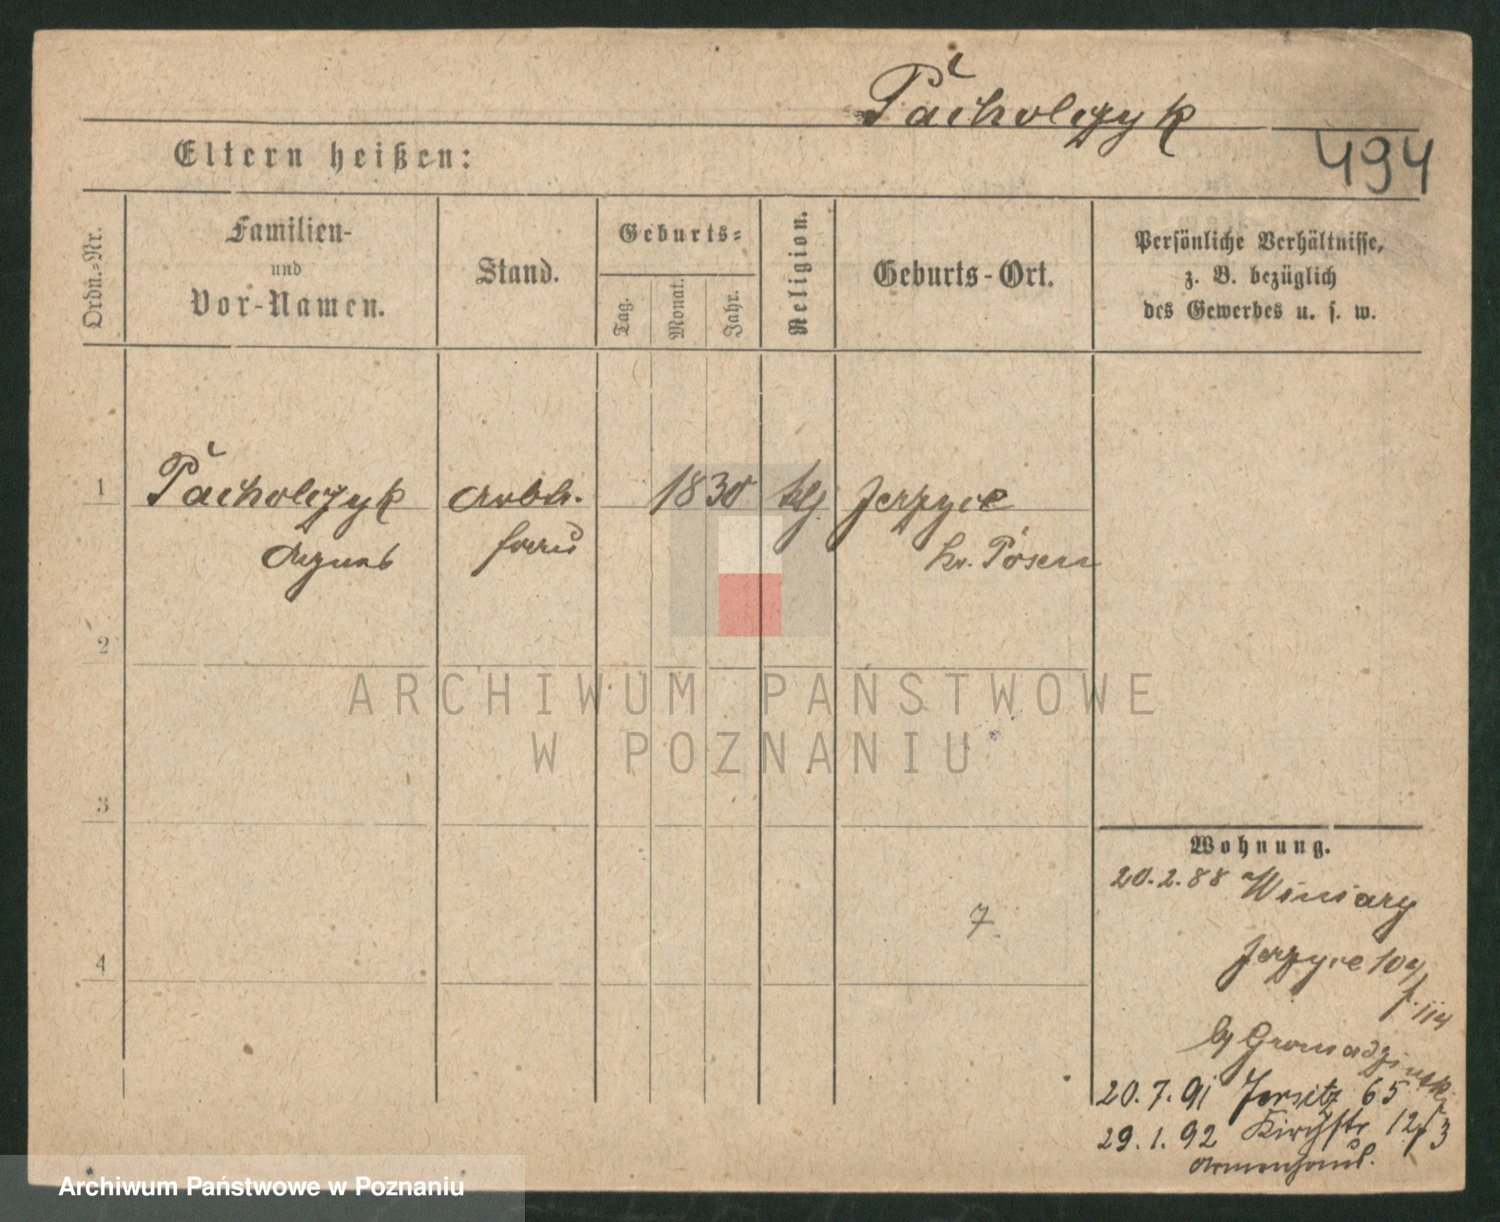 Pacholczyk
494
Eltern heißen:
Ordn.-Nr.
Familien-
und
Vor-Namen.
Stand.
Geburts-
Tag.
Monat.
Jahr.
Religion.
Geburts-Ort.
Persönliche Verhältnisse,
z. B. bezüglich
des Gewerbes u. s. w.
1 Pacholczyk Arbtr. 1830 ktlj Jerzyce
Agnes frau kr. Posen
2
3
4
ARCHIWUM PAŃSTWOWE
W POZNANIU
7
Wohnung.
20.2.88 Winiary
Jerzyce 104
f. 114
by Gromadzinski
20.7.91 Jersitz 65
29.1.92 Kirchstr 12/13
Armenhaus.
Archiwum Państwowe w Poznaniu